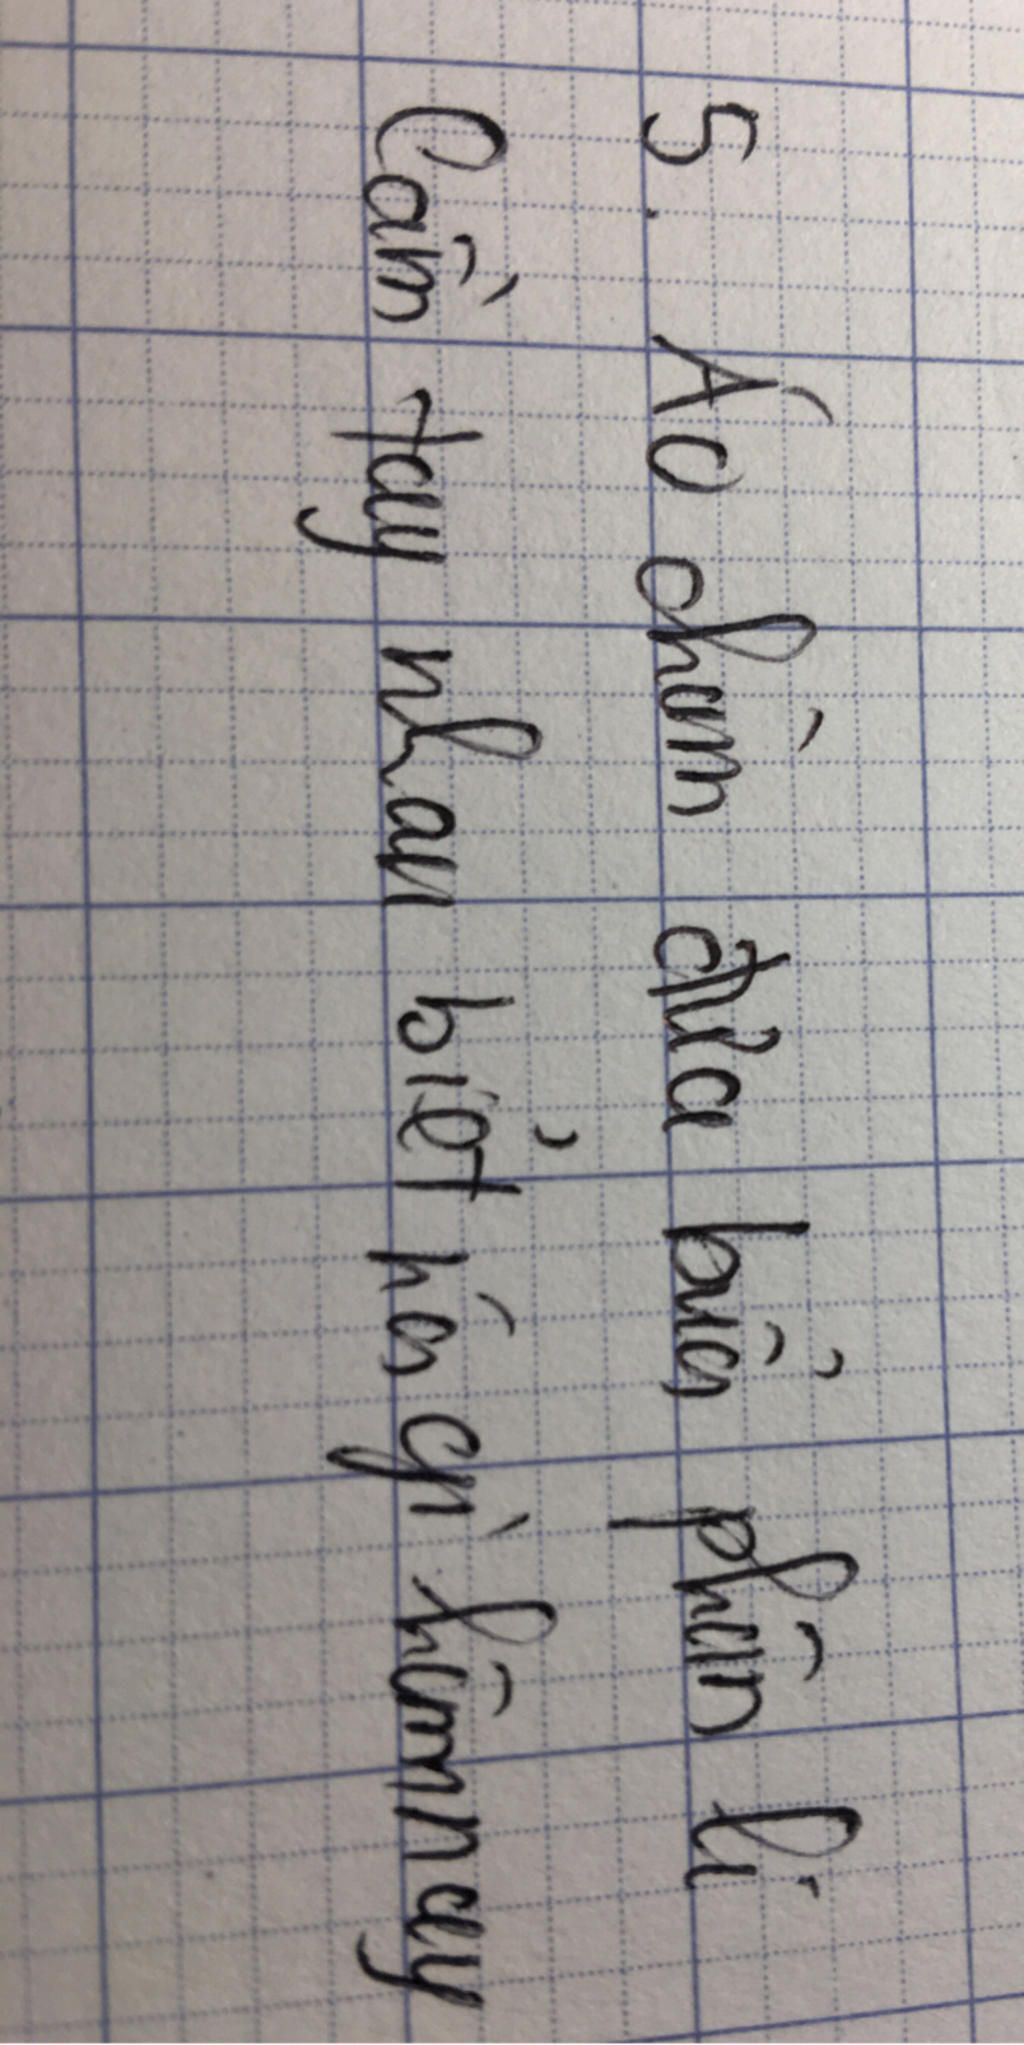 5. Áo chàm đưa buổi phân li
Cầm tay nhau biết nói gì hôm nay